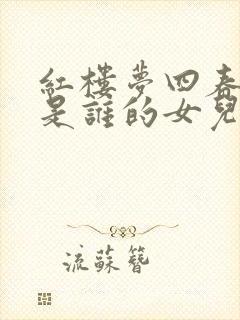 紅樓夢四春
是誰的女兒
流蘇簪